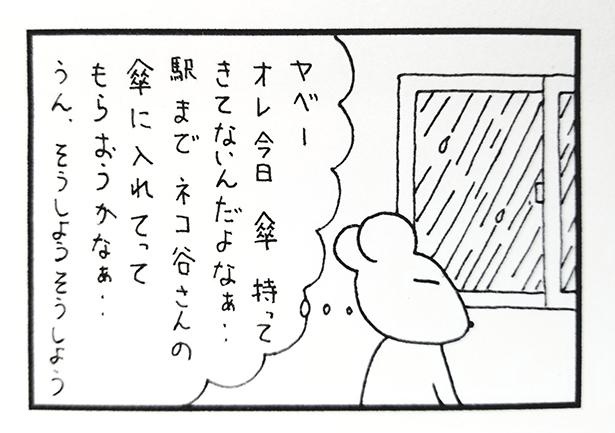 ヤベー
オレ今日 傘 持って
きてないんだよなぁ‥
駅まで ネコ谷さんの
傘に入れてって
もらおうかなぁ‥
うん、そうしようそうしよう